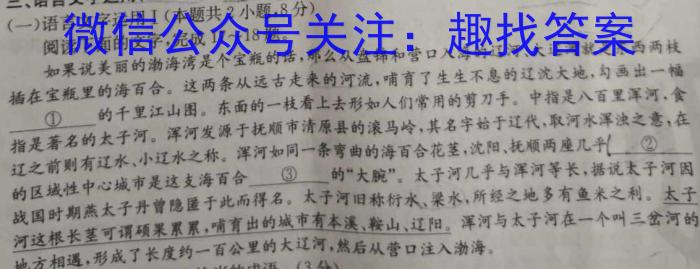 三、语言文字运用
(一)语言文字运用Ⅰ(本题共2小题,8分)
微信公众号关注：趣找答案
阅读下面的文字,完成17~18题。
如果说美丽的渤海湾是个宝瓶的话,那么从盘锦和营口入海的辽河、大辽河就是东西两枝
插在宝瓶里的海百合。这两条从远古走来的河流,哺育了生生不息的辽沈大地,勾画出一幅
①的千里江山图。东面的一枝看上去形如人们常用的剪刀手。中指是八百里浑河,食
指是著名的太子河。浑河发源于抚顺市清原县的滚马岭,其名字始于辽代,取河水浑浊之意,在
辽之前则有辽水、小辽水之称。浑河如同一条弯曲的海百合花茎,沈阳、抚顺两座几乎②
的区域性中心城市是这支海百合③的“大腕”。太子河几乎与浑河等长,据说太子河因
战国时期燕太子丹曾隐匿于此而得名。太子河旧称衍水、梁水,所经之地多有鱼米之利。太子
河这根长茎可谓硕果累累,哺育出的城市有本溪、鞍山、辽阳。浑河与太子河在一个叫三岔河的
地方相遇,形成了长度约一百公里的大辽河,然后从营口注入渤海。
的成语。(3分)